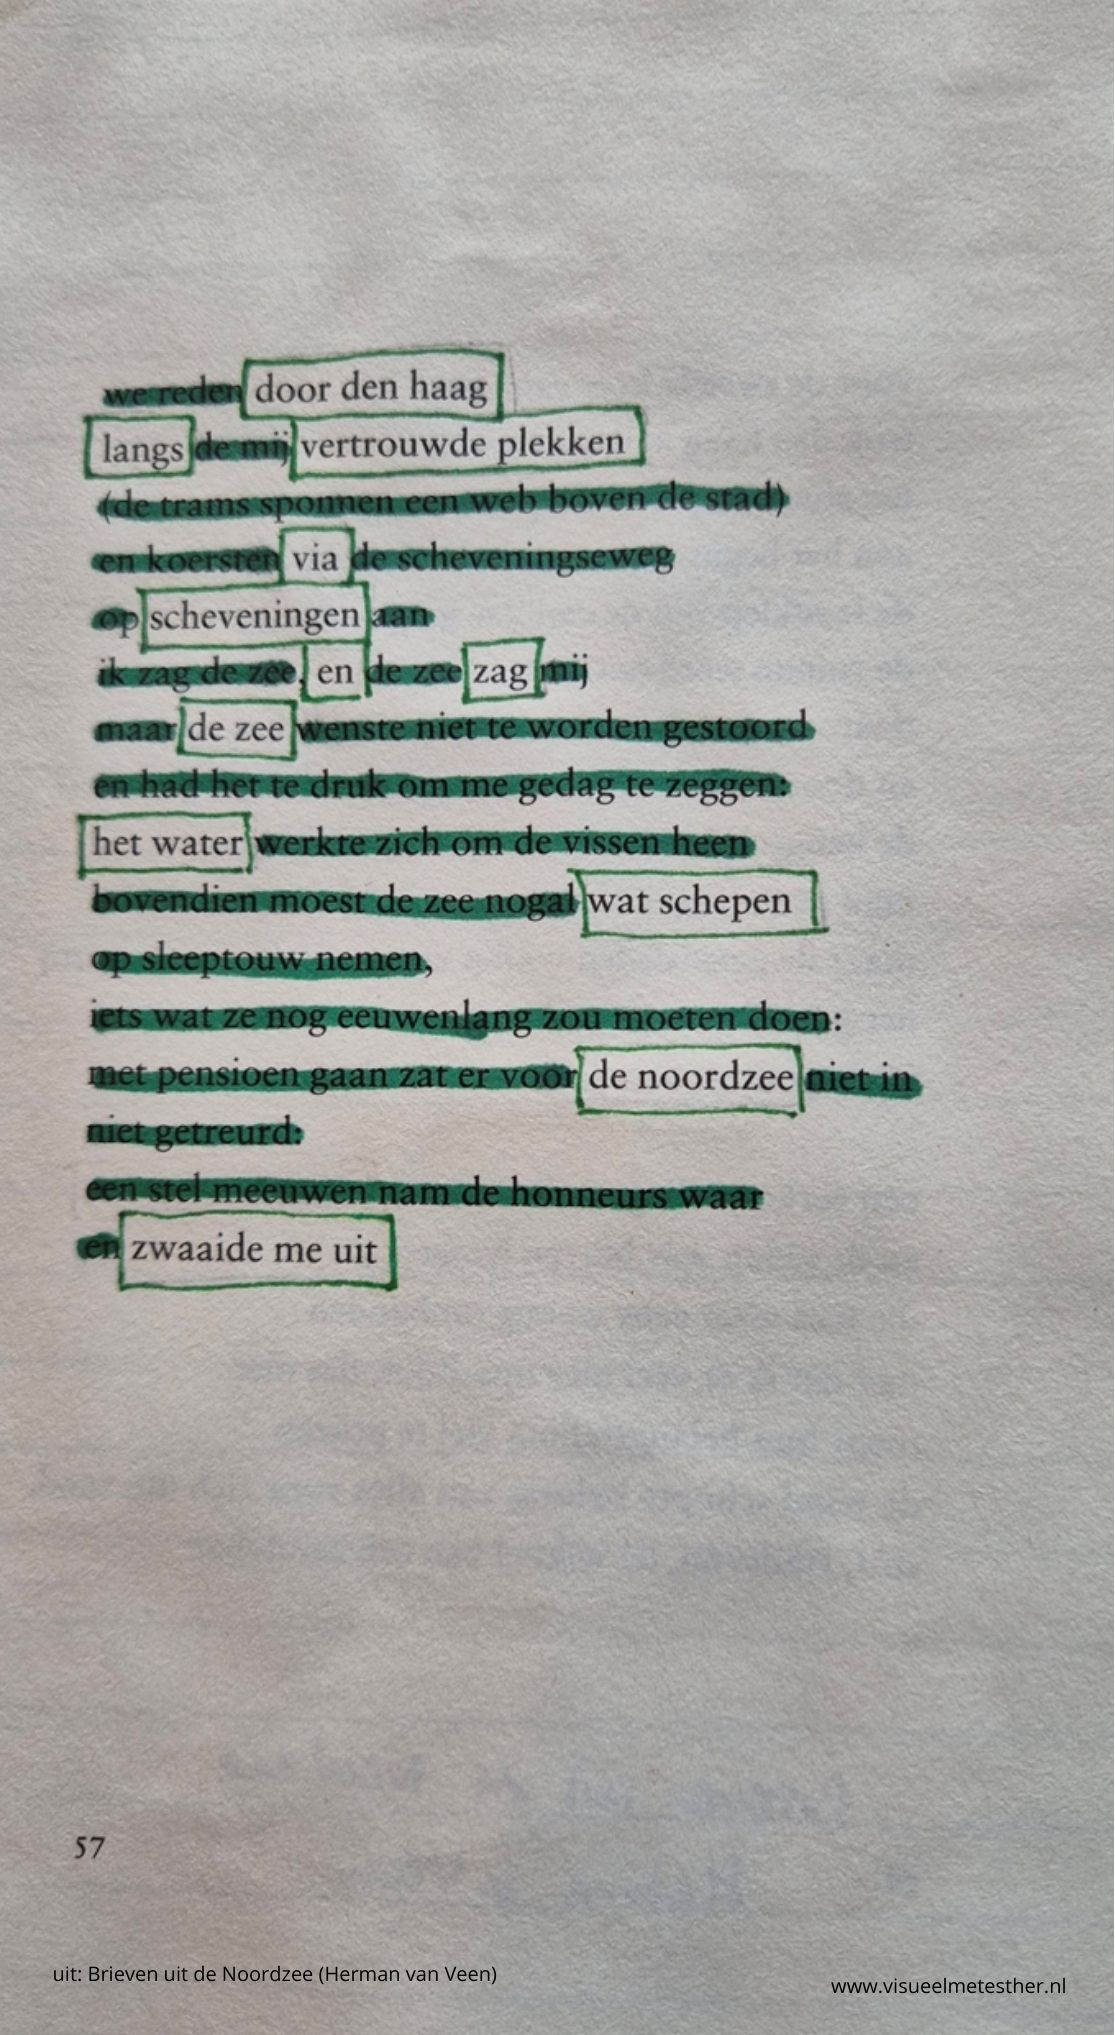 we reden door den haag
langs de mij vertrouwde plekken
(de trams sponnen een web boven de stad)
en koersten via de scheveningseweg
op scheveningen aan
ik zag de zee, en de zee zag mij
maar de zee wenste niet te worden gestoord
en had het te druk om me gedag te zeggen:
het water werkte zich om de vissen heen
bovendien moest de zee nogal wat schepen
op sleeptouw nemen,
iets wat ze nog eeuwenlang zou moeten doen:
met pensioen gaan zat er voor de noordzee niet in
niet getreurd:
een stel meeuwen nam de honneurs waar
en zwaaide me uit
57
uit: Brieven uit de Noordzee (Herman van Veen)
www.visueelmetesther.nl